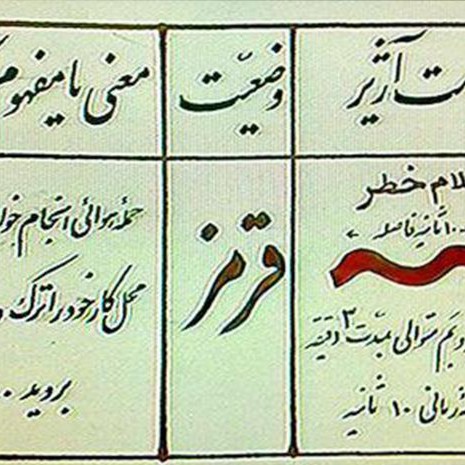 ت آژیر
وضعیّت
معنی یا مفهوم
لام خطر
۱۰ ثانیه فاصله
زیر و بم متوالی بمدّت ۳ دقیقه
زمانی ۱۰ ثانیه
قرمز
حمله هوائی انجام خوا
محل کار خود را ترک و
بروید.